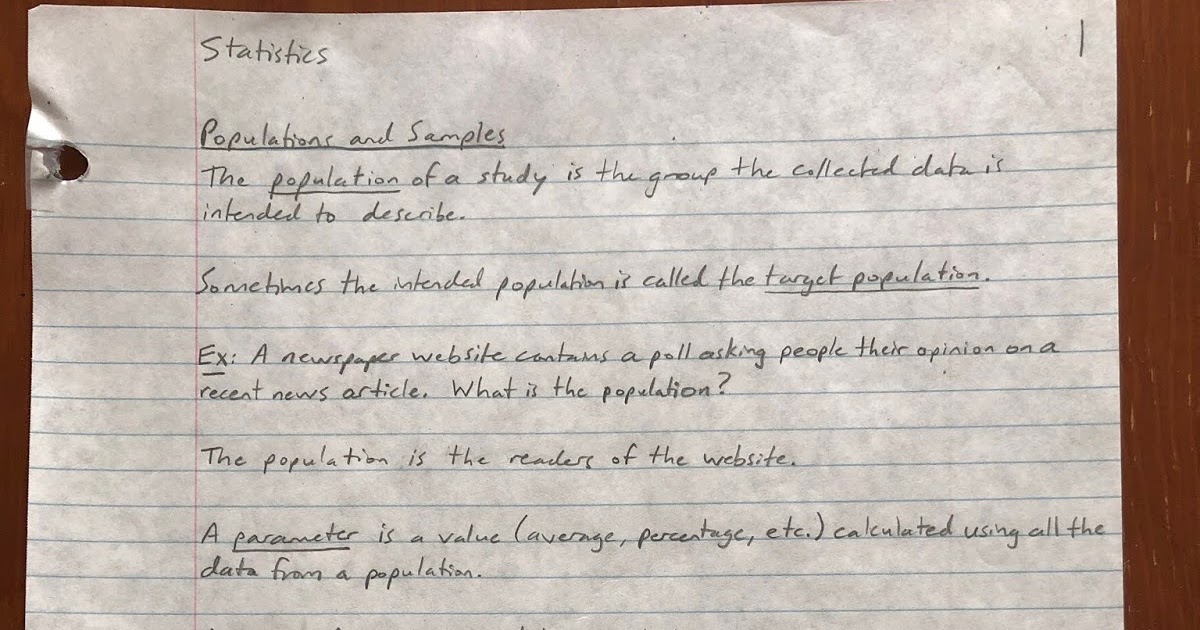 Statistics
1
Populations and Samples
The population of a study is the group the collected data is
intended to describe.
Sometimes the intended population is called the target population.
Ex: A newspaper website contains a poll asking people their opinion on a
recent news article. What is the population?
The population is the readers of the website.
A parameter is a value (average, percentage, etc.) calculated using all the
data from a population.